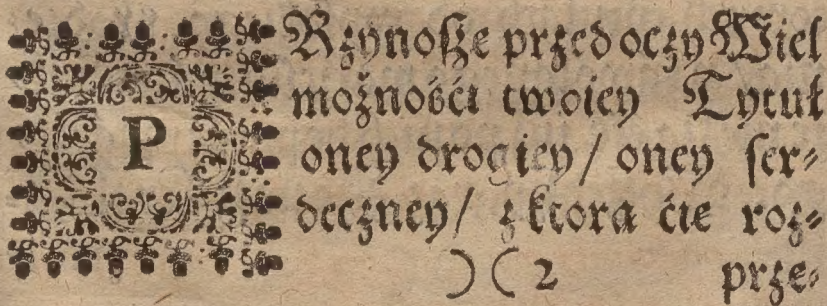 PRzynoszę przed oczy Wiel
możnośći twoiey Tytuł
oney drogiey/ oney ser⸗
deczney/ z ktorą ćię roz⸗
)( 2 prze⸗